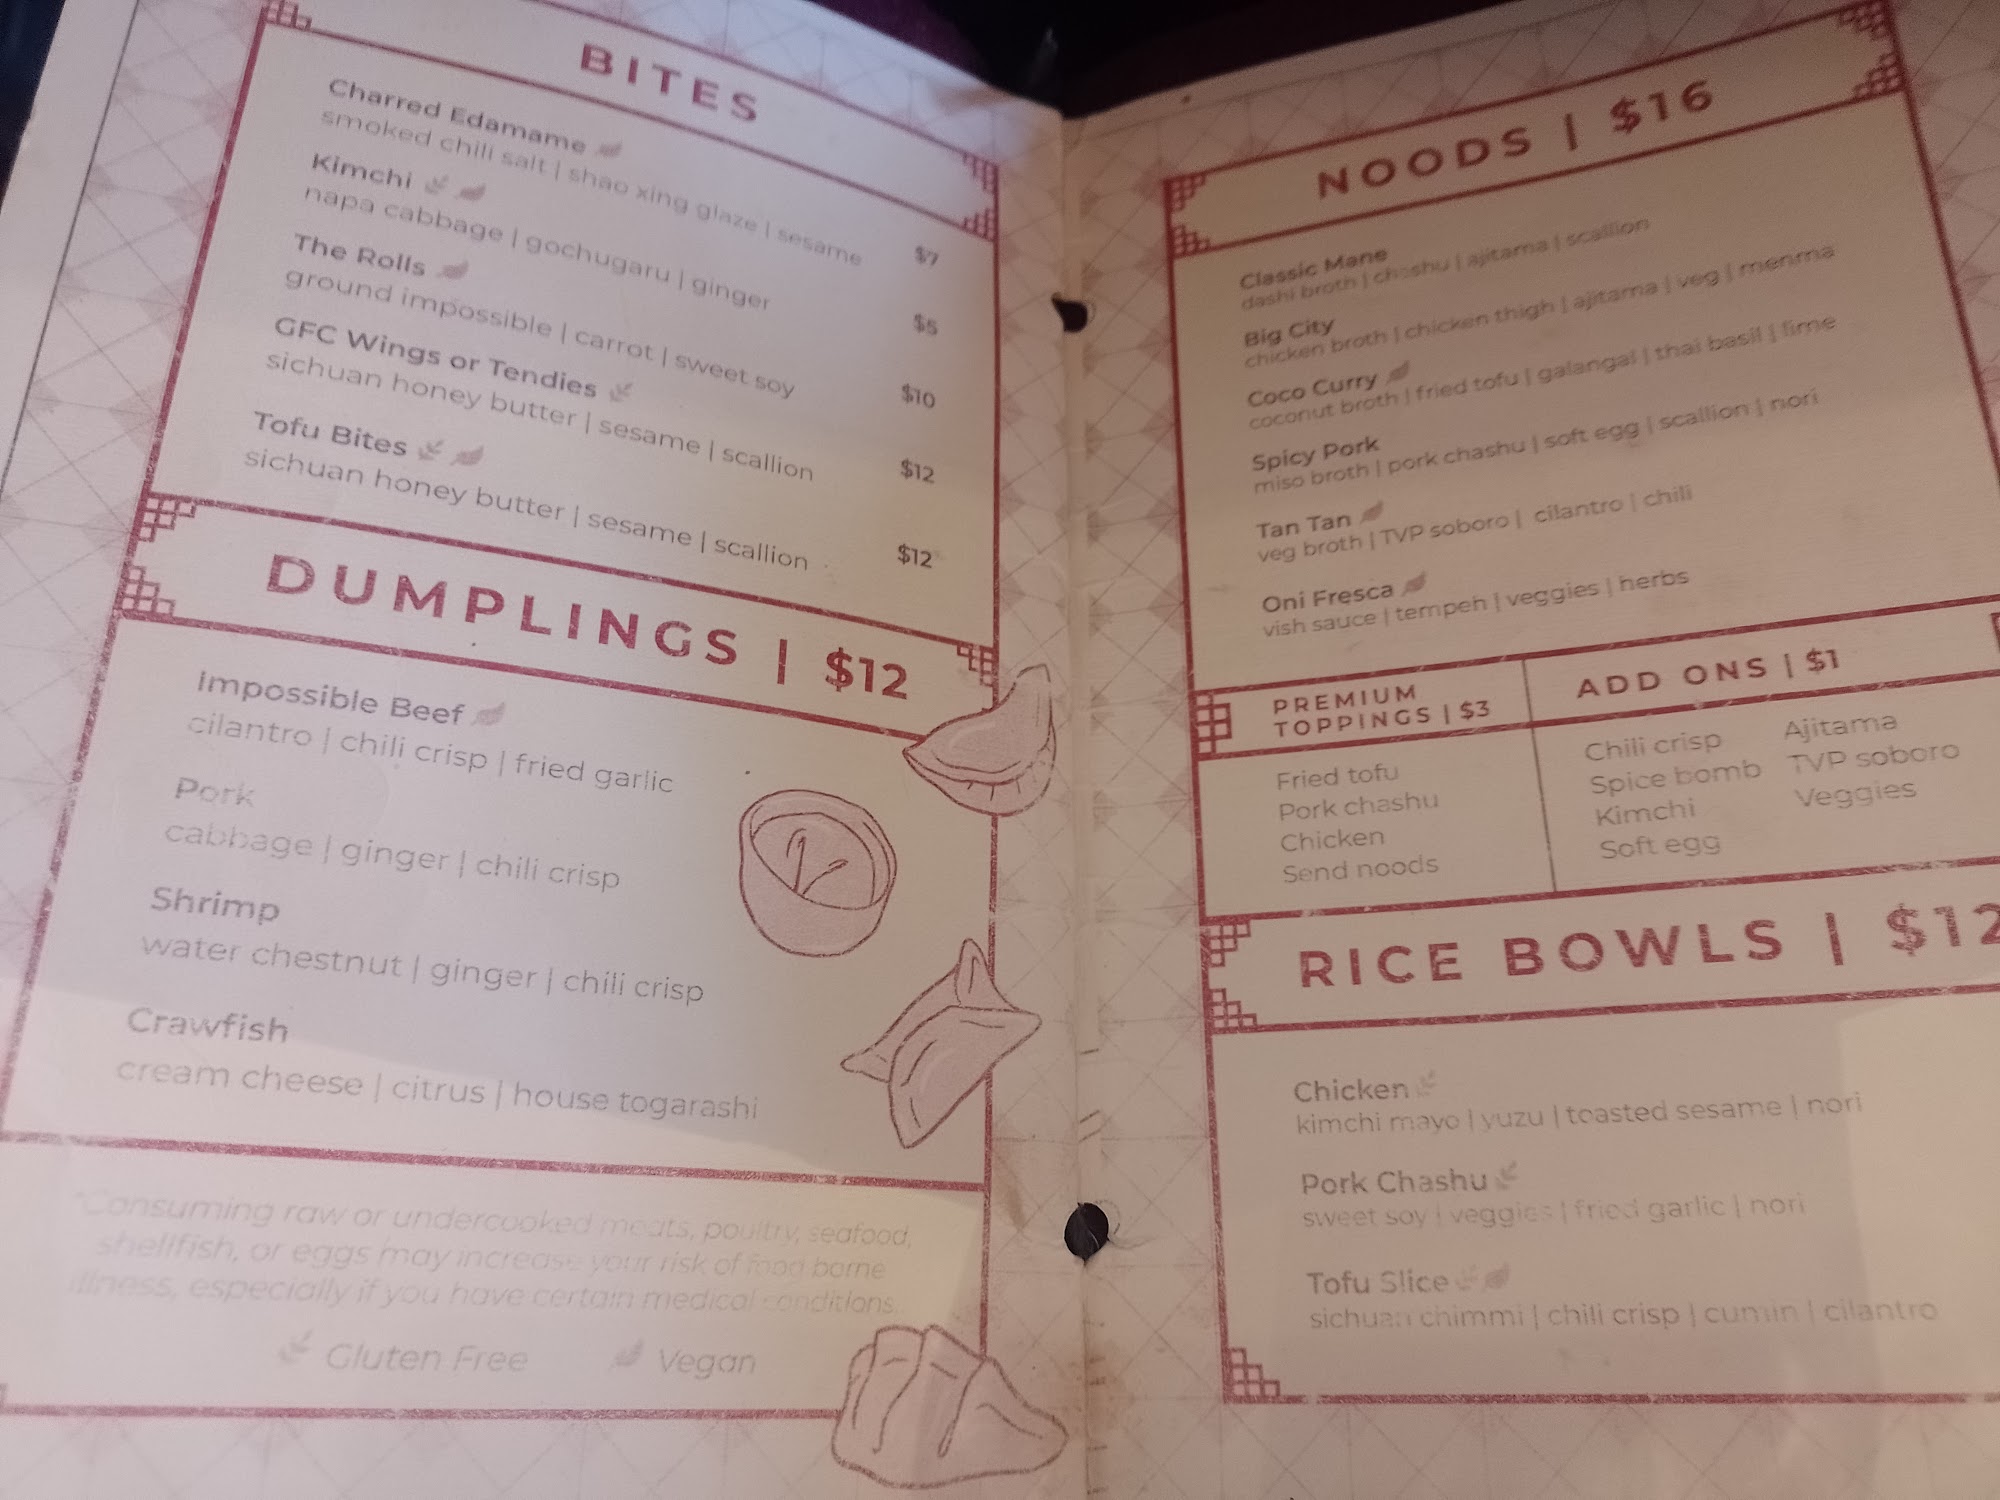 BITES
Charred Edamame
smoked chili salt | shao xing glaze | sesame $7
Kimchi
napa cabbage | gochugaru | ginger $5
The Rolls
ground impossible | carrot | sweet soy $10
GFC Wings or Tendies
sichuan honey butter | sesame | scallion $12
Tofu Bites
sichuan honey butter | sesame | scallion $12
DUMPLINGS | $12
Impossible Beef
cilantro | chili crisp | fried garlic
Pork
cabbage | ginger | chili crisp
Shrimp
water chestnut | ginger | chili crisp
Crawfish
cream cheese | citrus | house togarashi
*Consuming raw or undercooked meats, poultry, seafood,
shellfish, or eggs may increase your risk of food borne
illness, especially if you have certain medical conditions.
Gluten Free Vegan
NOODS | $16
Classic Mane
dashi broth | chashu | ajitama | scallion
Big City
chicken broth | chicken thigh | ajitama | veg | menma
Coco Curry
coconut broth | fried tofu | galangal | thai basil | lime
Spicy Pork
miso broth | pork chashu | soft egg | scallion | nori
Tan Tan
veg broth | TVP soboro | cilantro | chili
Oni Fresca
vish sauce | tempeh | veggies | herbs
PREMIUM
TOPPINGS | $3
Fried tofu
Pork chashu
Chicken
Send noods
ADD ONS | $1
Chili crisp
Spice bomb
Kimchi
Soft egg
Ajitama
TVP soboro
Veggies
RICE BOWLS | $12
Chicken
kimchi mayo | yuzu | toasted sesame | nori
Pork Chashu
sweet soy | veggies | fried garlic | nori
Tofu Slice
sichuan chimmi | chili crisp | cumin | cilantro